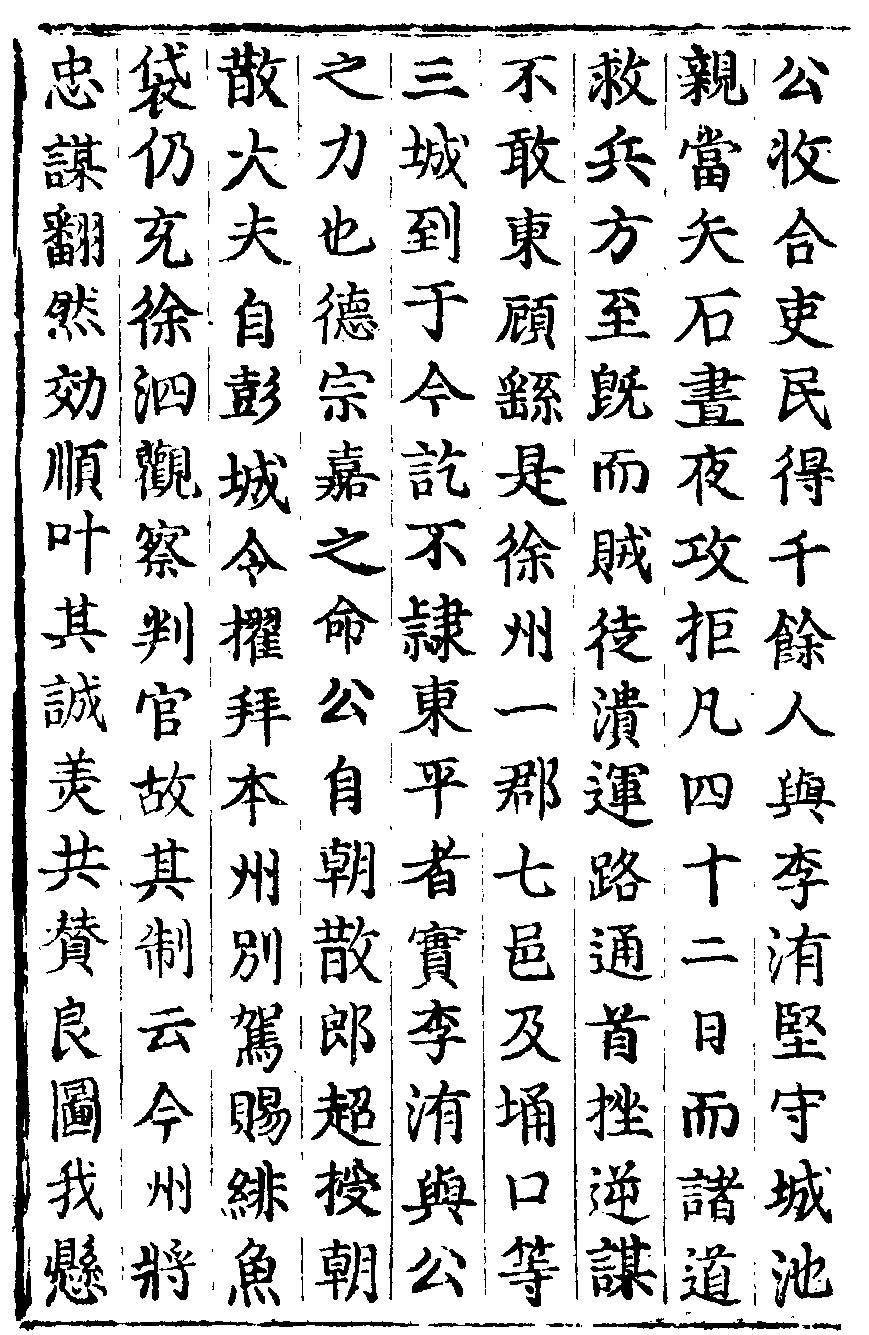 公收合吏民得千餘人與李洧堅守城池
親當矢石晝夜攻拒凡四十二日而諸道
救兵方至既而賊徒潰運路通首挫逆謀
不敢東顧繇是徐州一郡七邑及埇口等
三城到于今訖不隷東平者實李洧與公
之力也德宗嘉之命公自朝散郎超授朝
散大夫自彭城令擢拜本州別駕賜緋魚
袋仍充徐泗觀察判官故其制云今州將
忠謀翻然効順叶其誠羙共賛良圖我懸